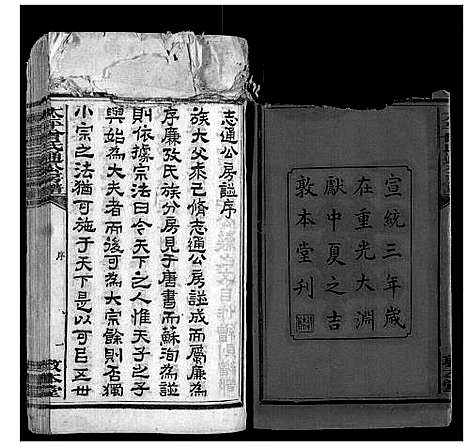 宣統三年歲
在重光大淵
獻中夏之吉
敦本堂刊
志通公房諡序
族大父乘己脩志通公房諡成而屬廉為
序廉攷氏族分房見于唐書而蘇洵為諡
則依據宗法曰今天下之人惟天子之子
與始為大夫者而後可為大宗餘則否獨
小宗之法猶可施于天下是以可㠯五世
序
一
敦本堂